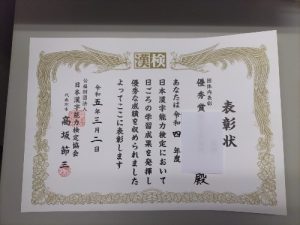 漢検
表彰状
団体内表彰
優秀賞
殿
あなたは令和四年度
日本漢字能力検定において
日ごろの学習成果を発揮し
優秀な成績を収められました
よってここに表彰します
令和五年三月二日
公益財団法人
日本漢字能力検定協会
代表理事
高坂節三